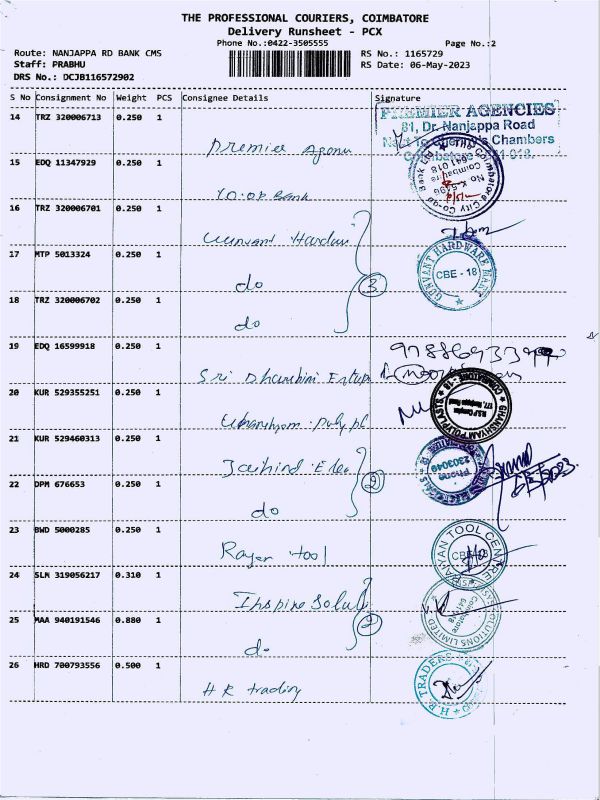 THE PROFESSIONAL COURIERS, COIMBATORE
Delivery Runsheet - PCX
Phone No.:0422-3505555 Page No.:2
Route: NANJAPPA RD BANK CMS RS No.: 1165729
Staff: PRABHU RS Date: 06-May-2023
DRS No.: DCJB116572902
S No Consignment No Weight PCS Consignee Details Signature
14 TRZ 320006713 0.250 1 Premier Agencies
PREMIER AGENCIES
81, Dr. Nanjappa Road
Chambers
15 EDQ 11347929 0.250 1 CO.OP Bank
Coimbatore City Co-op Bank Ltd
No K.5496
Coimbatore
641 018
16 TRZ 320006701 0.250 1 Gunvant Hardware
17 MTP 5013324 0.250 1 do 3
GUNVANT HARDWARE MART
CBE - 18
18 TRZ 320006702 0.250 1 do
19 EDQ 16599918 0.250 1 Sri Dharshini
20 KUR 529355251 0.250 1 Ghanshyam Poly pl
GHANSHYAM POLYPLASTS
COIMBATORE - 18
177, Nanjappa Road
21 KUR 529460313 0.250 1 Jaihind Elec
Phone
2303049
22 DPM 676653 0.250 1 do 2
23 BWD 5000285 0.250 1 tool
TOOL CENTRE
24 SLM 319056217 0.310 1 Inspire Solut
25 MAA 940191546 0.880 1 do 2
SOLUTIONS LIMITED
Coimbatore
641 018
26 HRD 700793556 0.500 1 H R trading
H.R. TRADERS